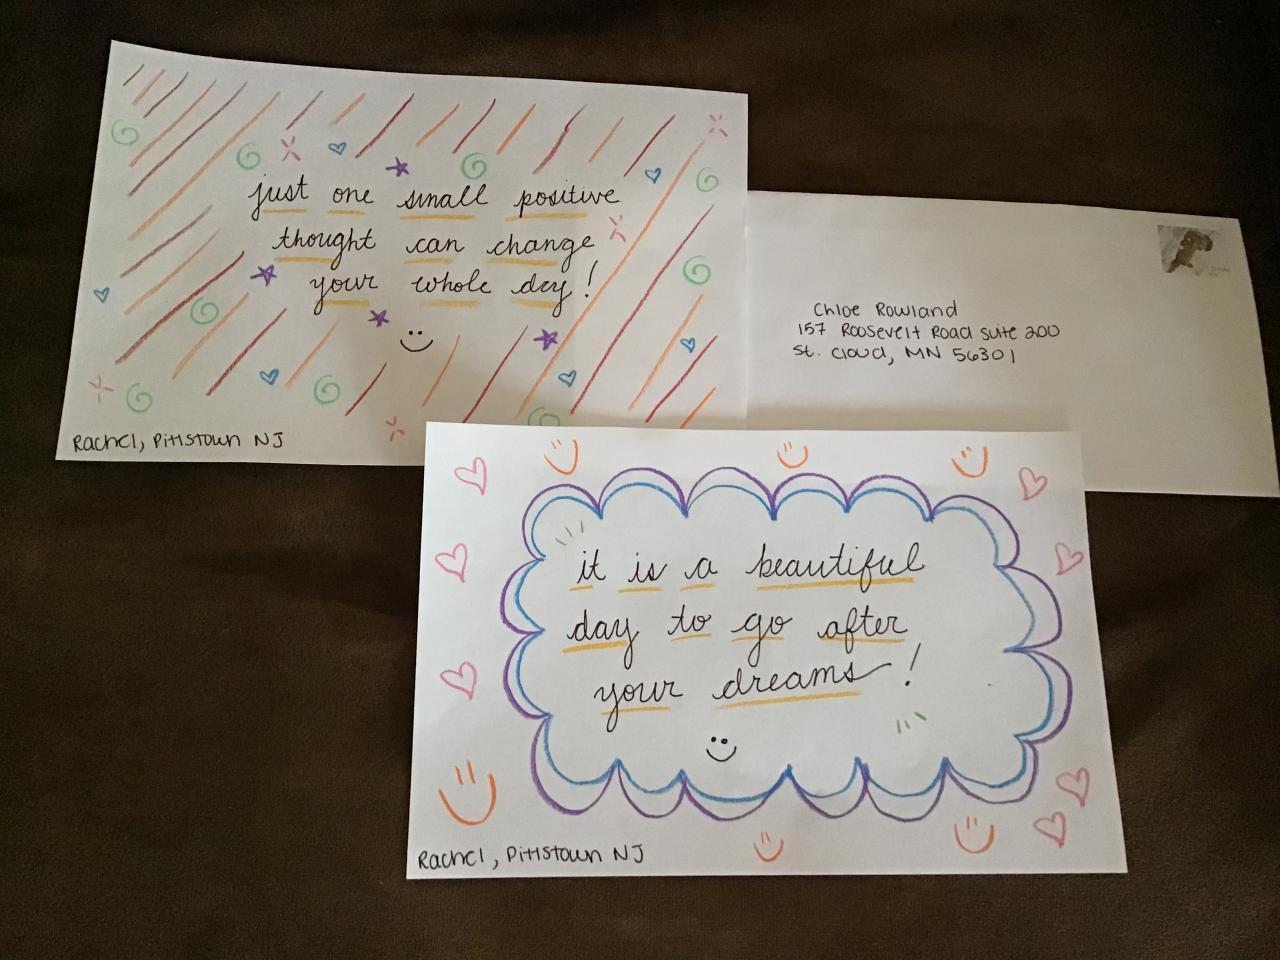 just one small positive
thought can change
your whole day!
Rachel, Pittstown NJ
Chloe Rowland
157 Roosevelt Road Suite 200
St. Cloud, MN 56301
it is a beautiful
day to go after
your dreams!
Rachel, Pittstown NJ